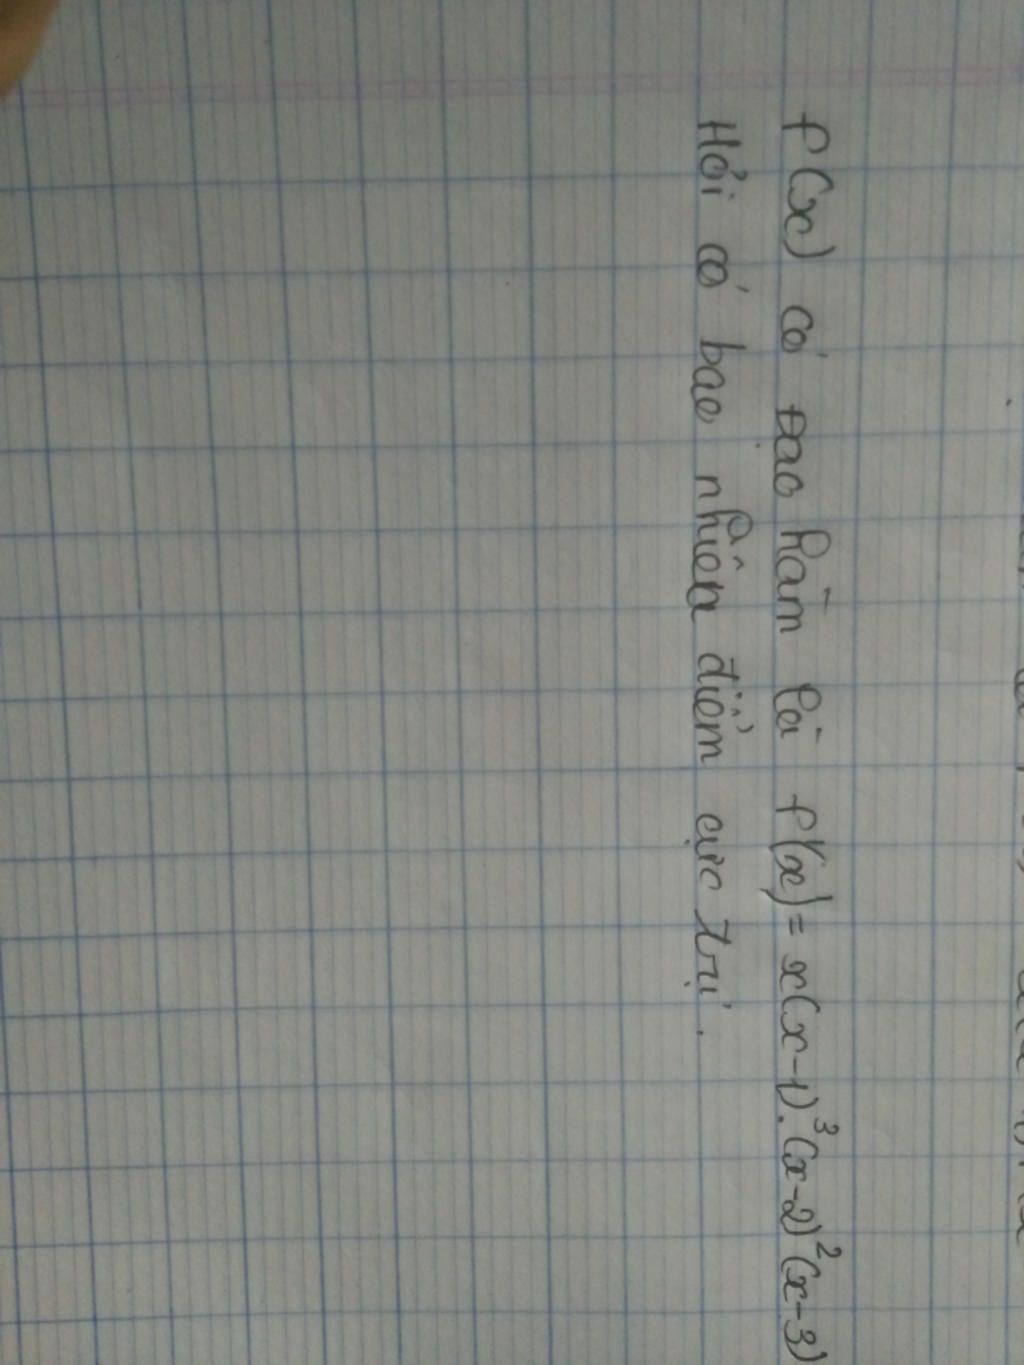 f(x) có Đạo hàm là f'(x) = x(x-1)³.(x-2)²(x-3)
Hỏi có bao nhiêu điểm cực trị.